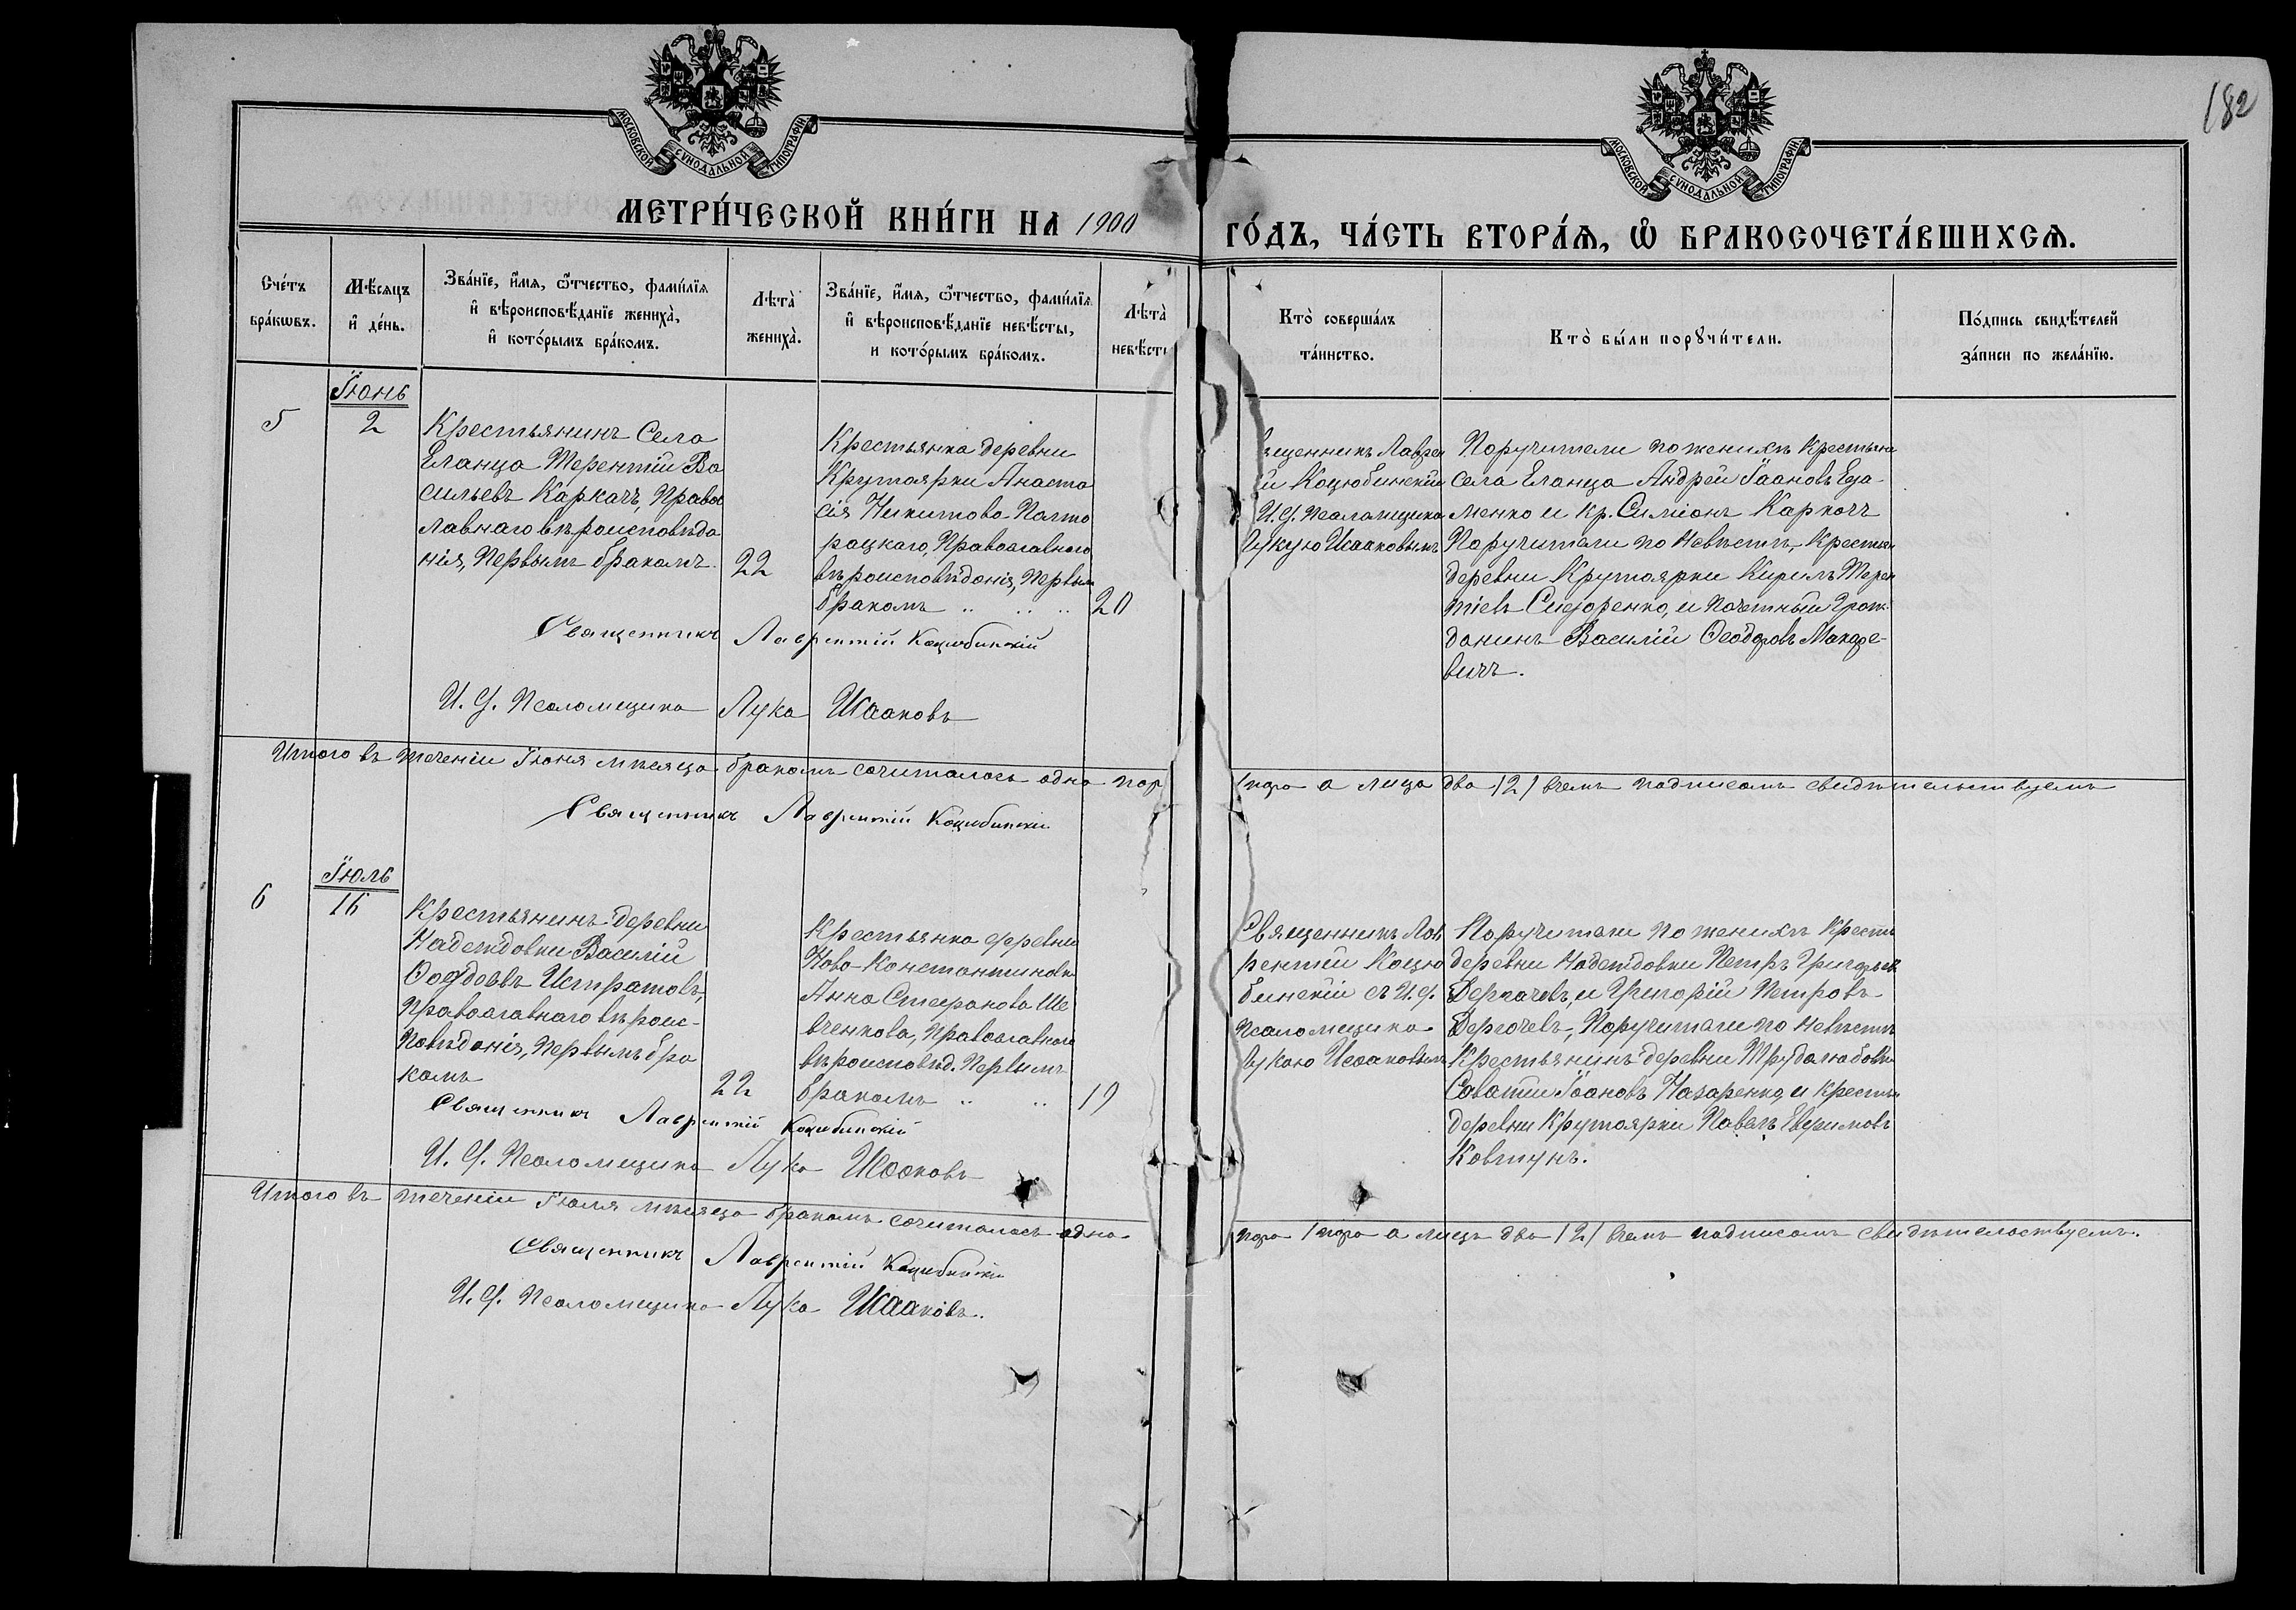 182
МОСКОВСКОЙ СѴНОДАЛЬНОЙ ТИПОГРАФІИ
МОСКОВСКОЙ СѴНОДАЛЬНОЙ ТИПОГРАФІИ
МЕТРИ́ЧЕСКОЙ КНИ́ГИ НА 1900
ГО́ДЪ, ЧА́СТЬ ВТОРА́Ѧ, Ѡ҆ БРАКОСОЧЕТА́ВШИХСѦ.
Сче́тъ
бра́кѡвъ.
Мѣ́сѧцъ
и҆ де́нь.
Зва́нїе, и҆́мѧ, ѻ҆́тчество, фами́лїѧ
и҆ вѣроисповѣ́данїе жениха̀,
и҆ кото́рымъ бра́комъ.
Лѣта̀
жениха̀.
Зва́нїе, и҆́мѧ, ѻ҆́тчество, фами́лїѧ
и҆ вѣроисповѣ́данїе невѣ́сты,
и кото́рымъ бра́комъ.
Лѣта̀
невѣ́ст
Кто̀ соверша́лъ
та́инство.
Кто̀ бы́ли порꙋчи́тели.
По́дпись свидѣ́телей
за́писи по жела́нїю.
5
Іюнь
2
Крестьянинъ Села
Еланца Терентій Ва
сильевъ Каркачъ, Правос
лавнаго вѣроисповѣда
нія, Первымъ бракомъ.
22
Крестьянка деревни
Крутоярки Анаста
сія Никитова Полто
рацкаго, Православнаго
вѣроисповѣданія, Первым
бракомъ
20
Священникъ Лаврентій Коцюбинскій
И. д. Псаломщика Лука Исааковъ
ященникъ Лаврен
ій Коцюбинскій
И. д. Псаломщика
Лукую Исааковымъ
Поручители по женихѣ Крестьяне
села Еланца Андрей Іоановъ
менко и кр. Симіонъ Каркачъ
Поручители по Невѣстѣ, Крестьян
деревни Крутоярки Кирилъ Терен
тіевъ Сидоренко, и Почетный Граж
данинъ Василій Ѳеодоровъ Макаре-
вичъ.
Итого въ теченіи Іюня мѣсяца бракомъ сочиталось одна пар
1 пара а лица два /2/ в чемъ подписомъ свидѣтельствуемъ
Священникъ Лаврентій Коцюбинскій
6
Іюль
16
Крестьянинъ деревни
Надеждовки Василій
Ѳеодоовъ Истратовъ,
Православнаго вѣроис-
повѣданія, Первымъ бра
комъ
22
Крестьянка деревни
Ново-Константиновки
Анна Стефанова Ше
вченкова, Православнаго
вѣроисповѣд. Первымъ
бракомъ
19
Священникъ Лаврентій Коцюбинскій
И. д. Псаломщика Лука Исааковъ
Священникъ Лав
рентій Коцю
бинскій съ И. д.
Псаломщика
Лукаю Исааковымъ
Поручители по женихѣ Крестья
деревни Надеждовки Петръ Григорьевъ
Деркачевъ, и Григорій Петровъ
Дергочевъ, Поручители по Невѣстѣ
Крестьянинъ деревни Трудолюбовки
Саватій Іоановъ Назаренко, и Крестья
деревни Крутоярки Павелъ Евфимовъ
Ковтунъ.
Итого въ теченіи Іюля мѣсяца бракомъ сочиталось одна
пара 1 пара а лицъ два /2/ в чемъ подписомъ свидѣтельствуемъ.
Священникъ Лаврентій Коцюбинскій
И. д. Псаломщика Лука Исааковъ.